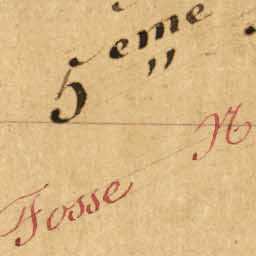 5 eme "
Fosse N